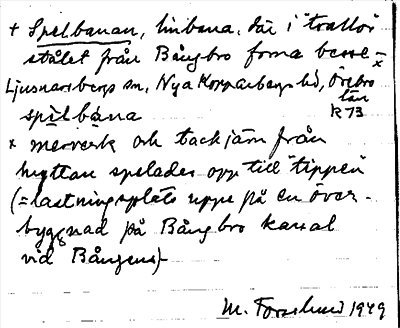 + Spelbanan, linbana, där i "trallor
stålet från Bångbro forna besse-
Ljusnarsbergs sn, Nya Kopparbergs hd, Örebro
län
spìlbàna R 73
x merverk och tackjärn från
hyttan spelades opp till "tippen"
(= lastningsplats uppe på en över-
byggnad på Bångbro kanal
vid Bångens)-
M. Forslund 1949